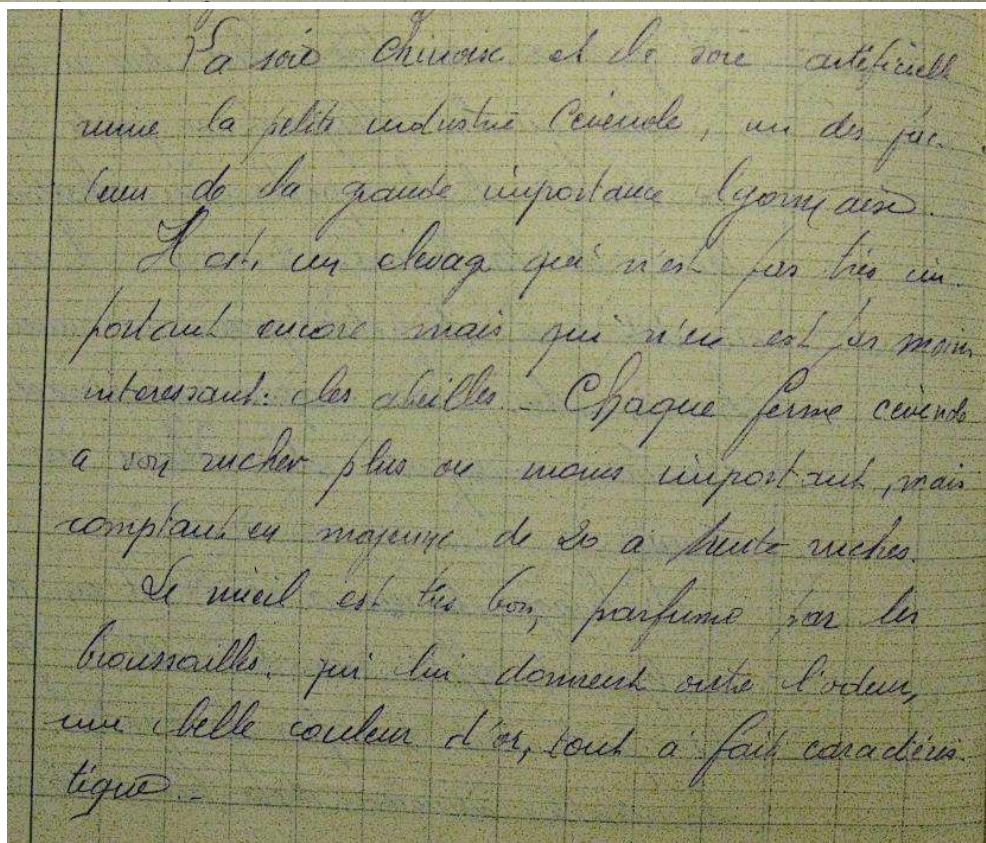 La soie Chinoise et la soie artificielle
ruine la petite industrie Cévenole, un des fac-
teurs de la grande importance lyonnaise.
Il est un élevage qui n'est pas très im-
portant encore mais qui n'en est pas moins
intéressant: les abeilles - Chaque ferme cévenole
a son rucher plus ou moins important, mais
comptant en moyenne de 20 à trente ruches.
Le miel est très bon, parfumé par les
broussailles, qui lui donnent outre l'odeur,
une belle couleur d'or, tout à fait caractéris-
tique.-